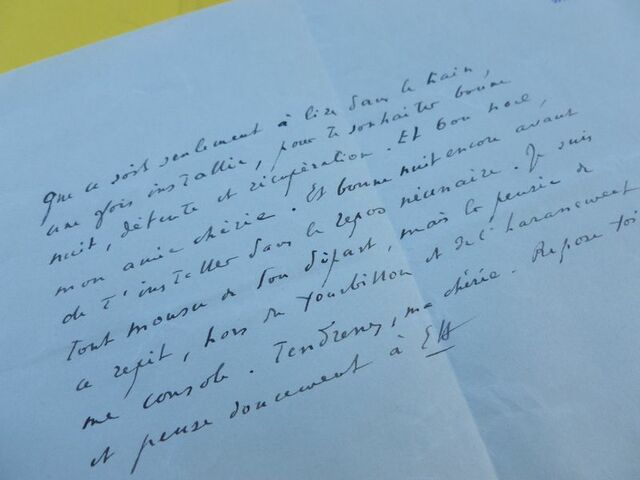 Que ce soit seulement à lire dans le train,
une fois installée, pour te souhaiter bonne
nuit, détente et récupération. Et bon noël,
mon amie chérie. Et bonne nuit encore avant
de t'installer dans le repos nécessaire. Je suis
tout de ton départ, mais la pensée de
ce répit, hors du tourbillon et de l'harassement
me console. Tendresses, ma chérie. Repose toi
et pense doucement à